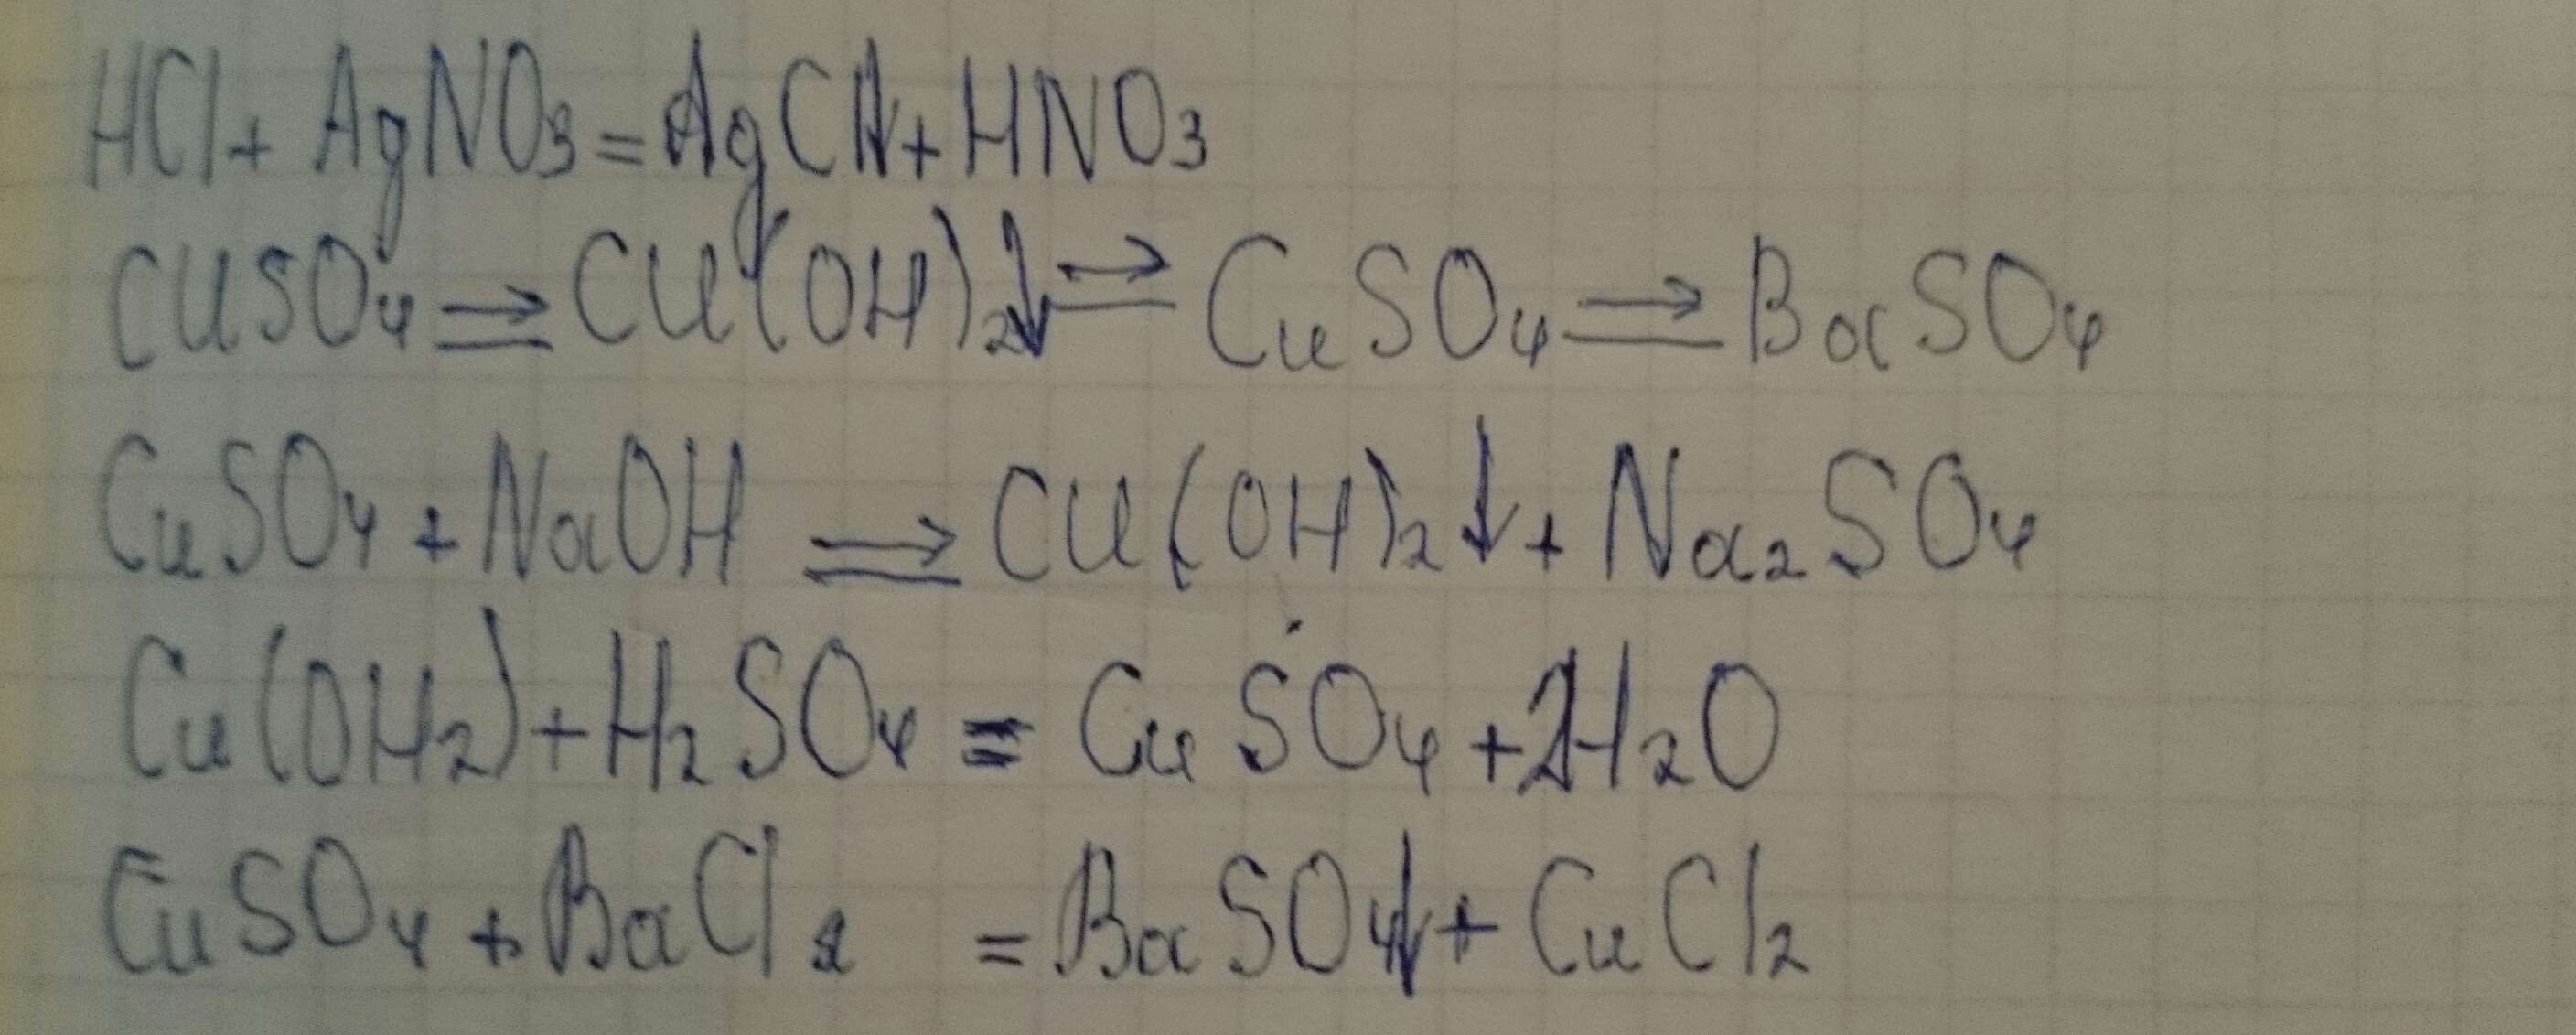 HCl + AgNO₃ = AgCl↓ + HNO₃
CuSO₄ ⇒ Cu(OH)₂↓ ⇒ CuSO₄ ⇒ BaSO₄
CuSO₄ + NaOH ⇒ Cu(OH)₂↓ + Na₂SO₄
Cu(OH₂) + H₂SO₄ = CuSO₄ + 2H₂O
CuSO₄ + BaCl₂ = BaSO₄↓ + CuCl₂